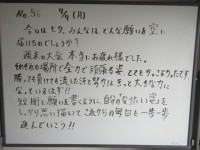 No.56 9/7(月)
今日は七夕。みんなはどんな願いを空に
届けるのでしょうか?
週末の大会 本当にお疲れ様でした。
それぞれの場所で全力で頑張る姿、とてもかっこよかったです
勝っても負けても流した汗と努力はきっと大きな力に
なっているはず!!
短冊に願いを書くように、自分のなりたい姿を
しっかり思い描いてこれからの毎日も一歩一歩
進んでいこう!!